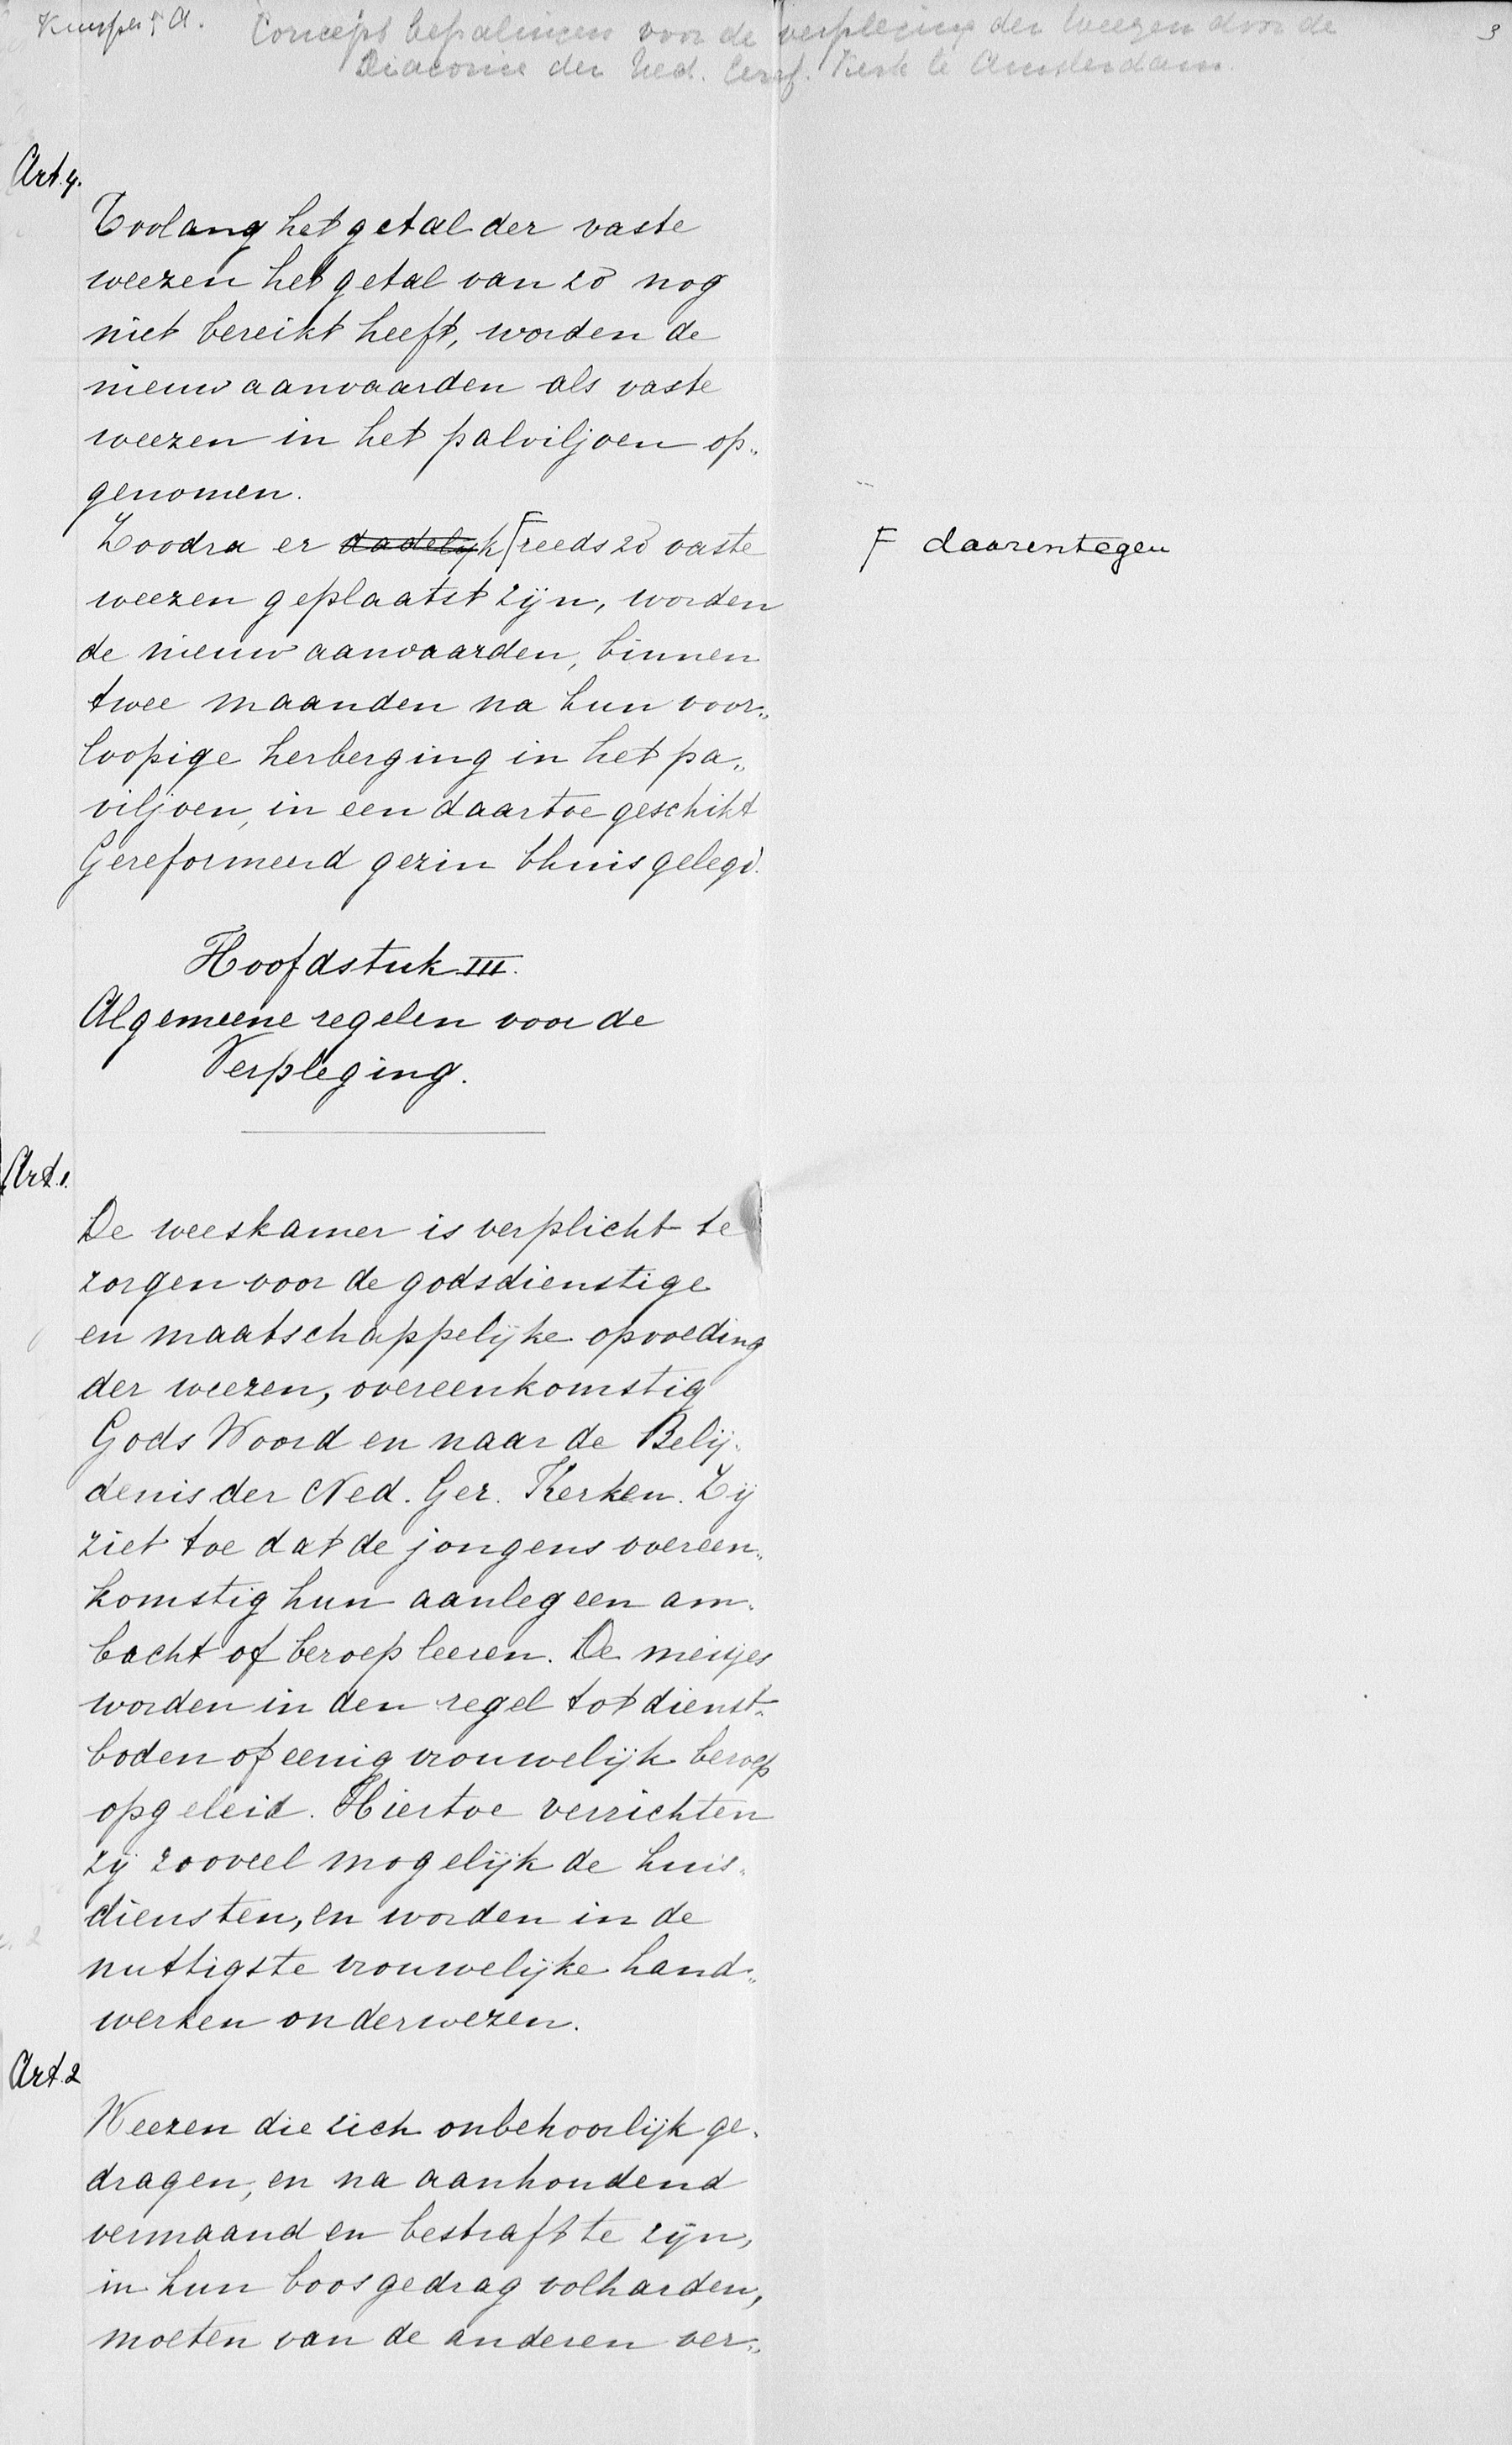 Kuyper, A. Concept bepalingen voor de verpleging der Weezen door de 3
Diaconie der Ned. Geref. Kerk te Amsterdam.
Art. 4.
Zoolang het getal der vaste
weezen het getal van 20 nog
niet bereikt heeft, worden de
nieuw aanvaarden als vaste
weezen in het palviljoen op„
genomen.
Zoodra er dadelijk F reeds 20 vaste
F daarentegen
weezen geplaatst zijn, worden
de nieuw aanvaarden, binnen
twee maanden na hun voor„
loopige herberging in het pa„
viljoen, in een daartoe geschikt
Gereformeerd gezin thuis gelegd.
Hoofdstuk III.
Algemeene regelen voor de
Verpleging.
Art. 1.
De weeskamer is verplicht te
zorgen voor de godsdienstige
en maatschappelijke opvoeding
der weezen, overeenkomstig
Gods Woord en naar de Belij„
denis der Ned. Ger. Kerken. Zij
ziet toe dat de jongens overeen„
komstig hun aanleg een am„
bacht of beroep leeren. De meisjes
worden in den regel tot dienst„
boden of eenig vrouwelijk beroep
opgeleid. Hiertoe verrichten
zij zooveel mogelijk de huis„
diensten, en worden in de
nuttigste vrouwelijke hand„
werken onderwezen.
Art. 2
Weezen die zich onbehoorlijk ge„
dragen, en na aanhoudend
vermaand en bestraft te zijn,
in hun boos gedrag volharden,
moeten van de anderen ver„